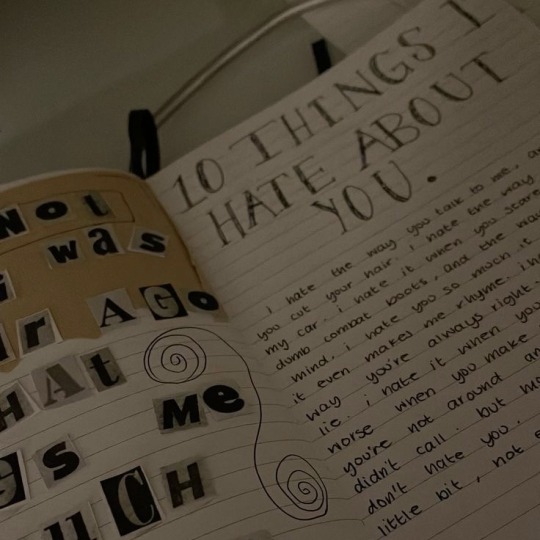 Not
was
AGo
HAt
Me
s
uCH
10 THINGS I
HATE ABOUT
YOU.
i hate the way you talk to me, and
you cut your hair. i hate the way
my car. i hate it when you stare
dumb combat boots, and the way
mind. i hate you so much it
it even makes me rhyme. i h
way you're always right.
lie. i hate it when you
worse when you make
you're not around an
didn't call. but mo
don't hate you.
little bit, not e